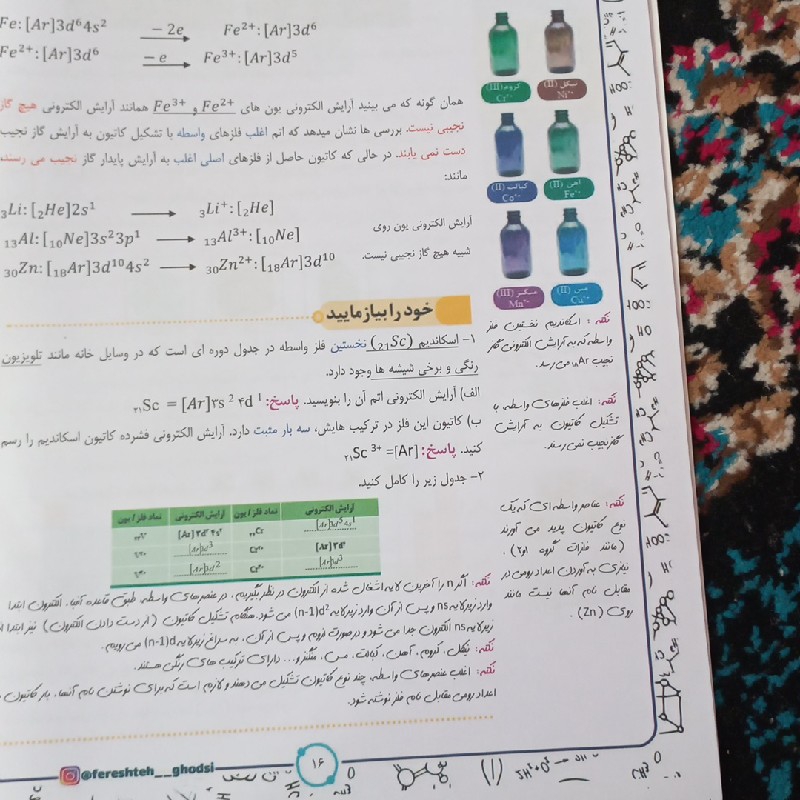 Fe: [Ar]3d⁶4s² — −2e → Fe²⁺: [Ar]3d⁶
Fe²⁺: [Ar]3d⁶ — −e → Fe³⁺: [Ar]3d⁵
همان گونه که می بینید آرایش الکترونی یون های Fe²⁺ و Fe³⁺ همانند آرایش الکترونی هیچ گاز
نجیبی نیست. بررسی ها نشان میدهد که اتم اغلب فلزهای واسطه با تشکیل کاتیون به آرایش گاز نجیب
دست نمی یابند. در حالی که کاتیون حاصل از فلزهای اصلی اغلب به آرایش پایدار گاز نجیب می رسند.
مانند:
₃Li: [₂He]2s¹ → ₃Li⁺: [₂He]
₁₃Al: [₁₀Ne]3s²3p¹ → ₁₃Al³⁺: [₁₀Ne]
₃₀Zn: [₁₈Ar]3d¹⁰4s² → ₃₀Zn²⁺: [₁₈Ar]3d¹⁰
آرایش الکترونی یون روی
شبیه هیچ گاز نجیبی نیست.
نیکل (II) Ni²⁺
کروم (III) Cr³⁺
آهن (II) Fe²⁺
کبالت (II) Co²⁺
مس (II) Cu²⁺
منگنز (III) Mn³⁺
خود را بیازمایید
۱- اسکاندیم (₂₁Sc) نخستین فلز واسطه در جدول دوره ای است که در وسایل خانه مانند تلویزیون
رنگی و برخی شیشه ها وجود دارد.
الف) آرایش الکترونی اتم آن را بنویسید. پاسخ: ₂₁Sc = [Ar]۳s ² ۴d ¹
ب) کاتیون این فلز در ترکیب هایش، سه بار مثبت دارد. آرایش الکترونی فشرده کاتیون اسکاندیم را رسم
کنید. پاسخ: ₂₁Sc ³⁺ =[Ar]
۲- جدول زیر را کامل کنید.
نماد فلز/یون آرایش الکترونی نماد فلز/یون آرایش الکترونی
[Ar] ۳d³ ۴s² ₂₄Cr
نکته: اسکاندیم نخستین فلز
واسطه که به آرایش الکترونی گاز
نجیب ₁₈Ar می رسد.
نکته: اغلب فلزهای واسطه با
تشکیل کاتیون به آرایش
گاز نجیب نمی رسند.
نکته: عناصر واسطه ای که یک
نوع کاتیون پدید می آورند
(مانند فلزات گروه ۱و۲)
نیازی به آوردن اعداد رومی در
مقابل نام آنها نیست مانند
روی (Zn).
نکته: اگر n را آخرین لایه اشغال شده از الکترون در نظر بگیریم، در عنصرهای واسطه طبق قاعده آفبا، الکترون ابتدا
وارد زیرلایه ns و پس از آن وارد زیرلایه (n-1)d می شود. هنگام تشکیل کاتیون (از دست دادن الکترون) نیز ابتدا از
زیرلایه ns الکترون جدا می شود و در صورت لزوم و پس از آن، به سراغ زیرلایه (n-1)d می رویم.
نکته: نیکل، کروم، آهن، کبالت، مس، منگنز و... دارای ترکیب های رنگی هستند.
نکته: اغلب عنصرهای واسطه، چند نوع کاتیون تشکیل می دهند و لازم است که برای نوشتن نام آنها، بار کاتیون با
اعداد رومی مقابل نام فلز نوشته شود.
۱۶
@fereshteh__ghodsi